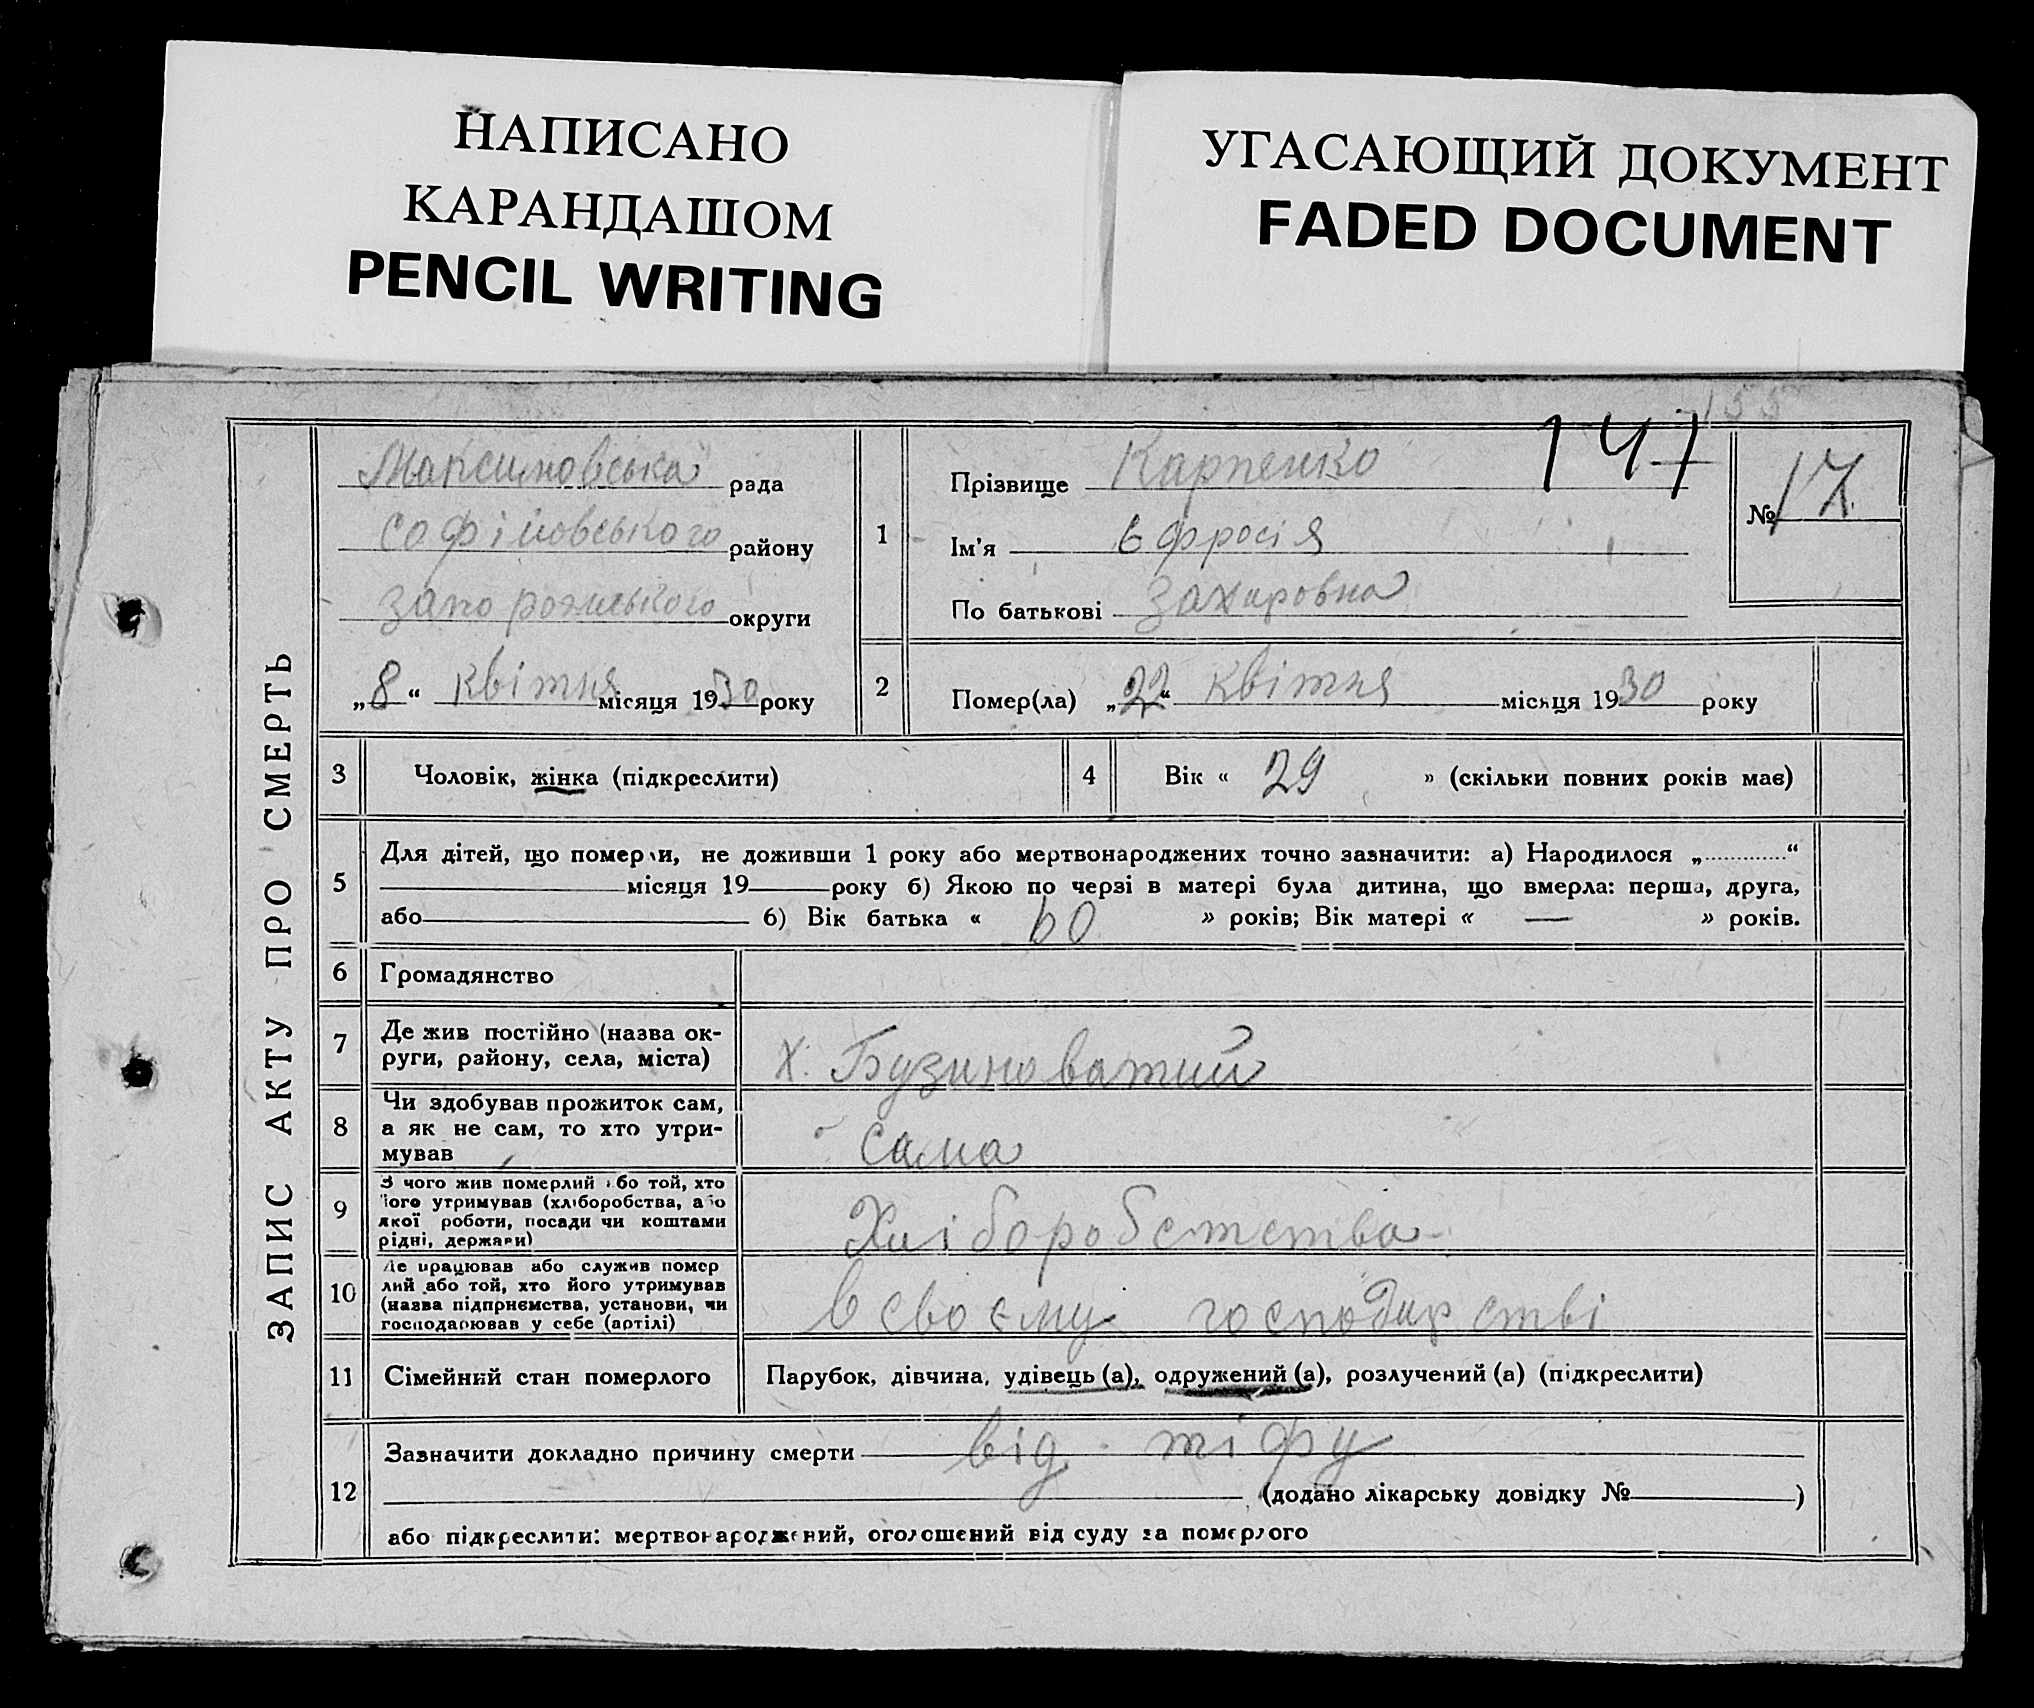 НАПИСАНО
КАРАНДАШОМ
PENCIL WRITING
УГАСАЮЩИЙ ДОКУМЕНТ
FADED DOCUMENT
155
147
ЗАПИС АКТУ ПРО СМЕРТЬ
Максимовська рада
Софійовського району
Запорожського округи
„8“ квітня місяця 1930 року
1
Прізвище Карпенко
Ім'я Єфросія
По батькові Захаровна
№ 17
2 Помер(ла) „22“ квітня місяця 1930 року
3 Чоловік, жінка (підкреслити)
4 Вік « 29 » (скільки повних років має)
5
Для дітей, що померли, не доживши 1 року або мертвонароджених точно зазначити: а) Народилося „ “
місяця 19 року б) Якою по черзі в матері була дитина, що вмерла: перша, друга,
або 6) Вік батька « 60 » років; Вік матері « — » років.
6 Громадянство
7 Де жив постійно (назва ок-
руги, району, села, міста)
х. Бузиноватий
8 Чи здобував прожиток сам,
а як не сам, то хто утри-
мував
сама
9 З чого жив померлий або той, хто
його утримував (хліборобства, або
якої роботи, посади чи коштами
рідні, держави)
Хліборобстства
10 Де працював або служив помер
лий або той, хто його утримував
(назва підприємства, установи, чи
господарював у себе (артілі)
в своєму господарстві
11 Сімейний стан померлого
Парубок, дівчина, удівець (а), одружений (а), розлучений (а) (підкреслити)
12
Зазначити докладно причину смерти від тіфу
(додано лікарську довідку № )
або підкреслити: мертвонароджений, оголошений від суду за померлого